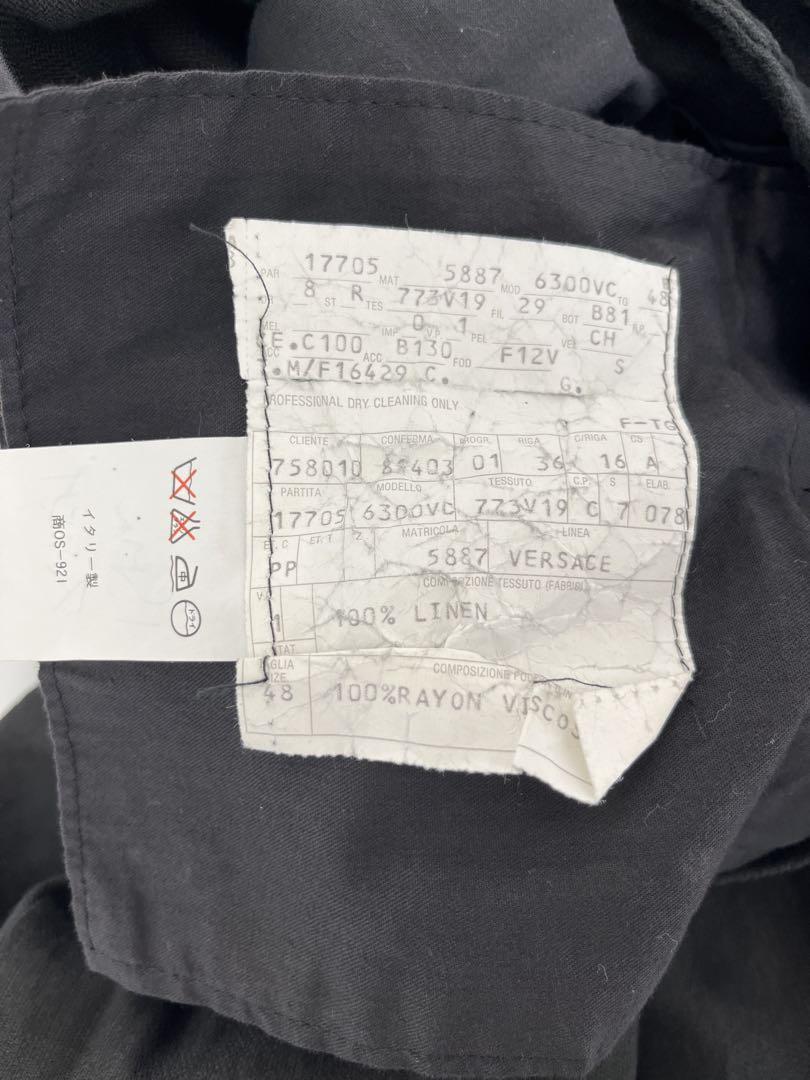 PAR 17705 MAT 5887 MOD 6300VC TG 48
8 ST R TES 773V19 FIL 29 BOT B81
MEL IMP 0 V.P 1 PEL VEL CH
E.C100 ACC B130 FOD F12V S
.M/F16429 C. G.
PROFESSIONAL DRY CLEANING ONLY
F-TG
CLIENTE CONFERMA PROGR. RIGA C/RIGA CS
758010 81403 01 36 16 A
PARTITA MODELLO TESSUTO C.P. S ELAB.
17705 6300VC 773V19 C 7 078
ET. C ET. T Z MATRICOLA LINEA
PP 5887 VERSACE
COMPOSIZIONE TESSUTO (FABRIC)
1 100% LINEN
COMPOSIZIONE
48 100%RAYON VISCOS
イタリー製
商OS-921
ドライ